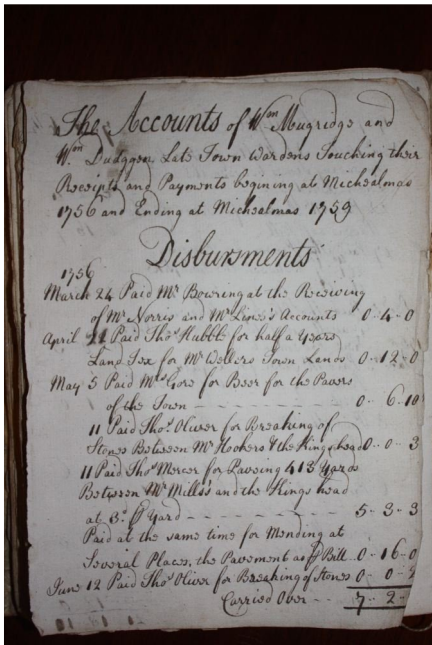 The Accounts of Wm Mugridge and
Wm Dudggen Late Town Wardens Touching their
Receipts and Payments begining at Michealmas
1756 and Ending at Michealmas 1759
Disbursments
1756
March 24 Paid Mr Bowring at the Receiving
of Mr Norris and Mr Lines's Accounts 0 - 4 - 0
April 21 Paid Thos Hubbt for half a years
Land Tax for Mr Wellers Town Lands 0 - 12 - 0
May 5 Paid Mrs Gore for Beer for the Pavers
of the Town - - - 0 - 6 - 10
11 Paid Thos Oliver for Breaking of
Stones Between Mr Hookers & the Kings head 0 - 0 - 3
11 Paid Thos Mercer for Paveing 413 Yards
Between Mr Mills's and the Kings head
at 3d. ℔ Yard - - - 5 - 3 - 3
Paid at the same time for Mending at
Several Places, the Pavement as ℔ Bill .. 0 - 16 - 0
June 12 Paid Thos Oliver for Breaking of Stones 0 - 0 - 2
Carried Over - - - 7 - 2 -